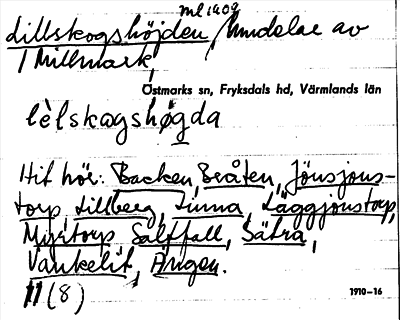 ml 1909
Lillskogshöjden, hmdelar av
1 Millmark,
Östmarks sn, Fryksdals hd, Värmlands län
lèlskogshøgda
Hit hör: Backen, Bråten, Jönsjons-
torp, Lillberg, Linna, Läggjonstorp,
Myrtorp, Salffall, Sätra,
Vankelit, Ängen.
11 (8)
1910-16